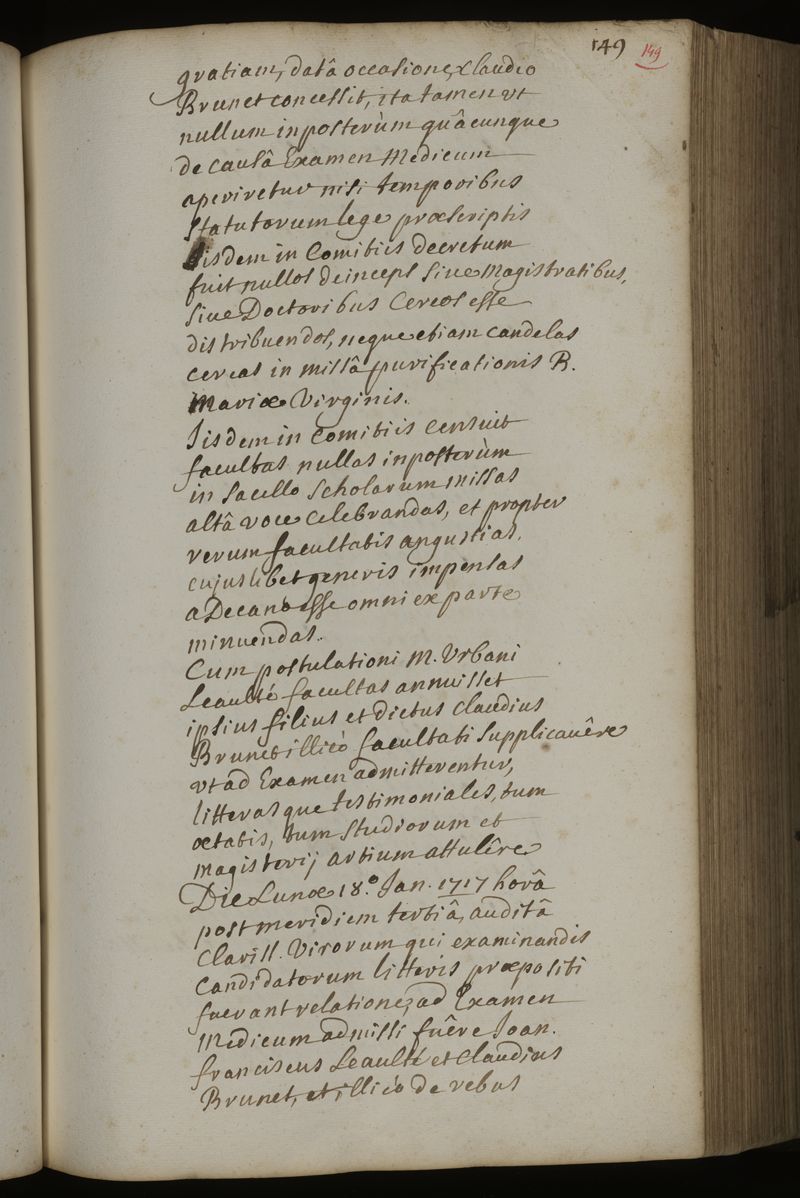 149 149
gratiam, datâ occasione, Claudio
Brunet concessit, ita tamen vt
nullum inposterùm quâcunque
de causâ Examen Medicum
aperiretur nisi temporibus
statutorum lege præscriptis
Iisdem in Comitiis decretum
fuit nullos deinceps siue Magistratibus,
siue Doctoribus Cereos esse
distribuendos, neque etiam candelas
cereas in missâ purificationis B.
Mariæ Virginis.
Iisdem in Comitiis censuit
facultas nullas inposterùm
in sacello scholarum missas
altâ voce celebrandas, et propter
rerum facultatis angustias,
cujuslibet generis impensas
a Decano esse omni ex parte
minuendas.
Cum postulationi M. Vrbani
Leaulté facultas annuisset
ipsius filius et dictus Claudius
Brunet illicò facultati supplicauêre
vt ad Examen admitterentur,
litterasque testimoniales, tum
ætatis, tum studiorum et
magisterij artium attulêre
Die Lunæ 18.° Jan. 1717 horâ
post meridiem tertiâ, auditâ
Clariss. Virorum qui examinandis
Candidatorum litteris præpositi
fuerant relatione, ad Examen
Medicum admissi fuêre Joan.
franciscus Leaulté et Claudius
Brunet, et illicò de rebus